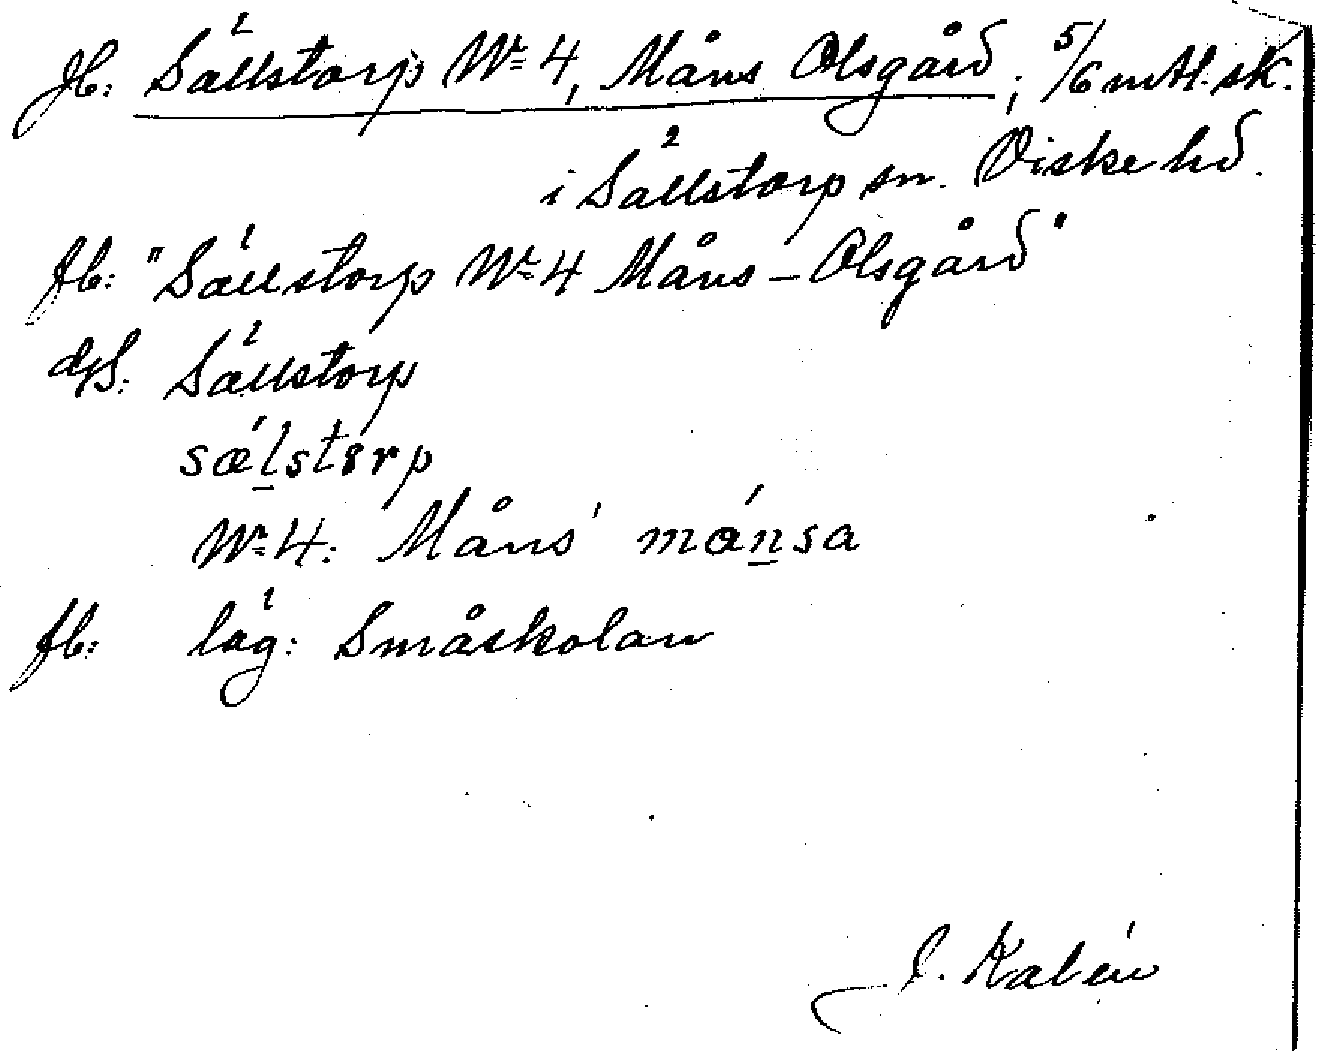 Jb: Sällstorp Nº 4, Måns Olsgård; 5/6 mtl. sk.
i Sällstorp sn. Viske hd.
fb: "Sällstorp Nº 4 Måns-Olsgård"
ds: Sällstorp
sælstorp
Nº 4: Måns' månsa
fb: läg: Småskolan
J. Kalén